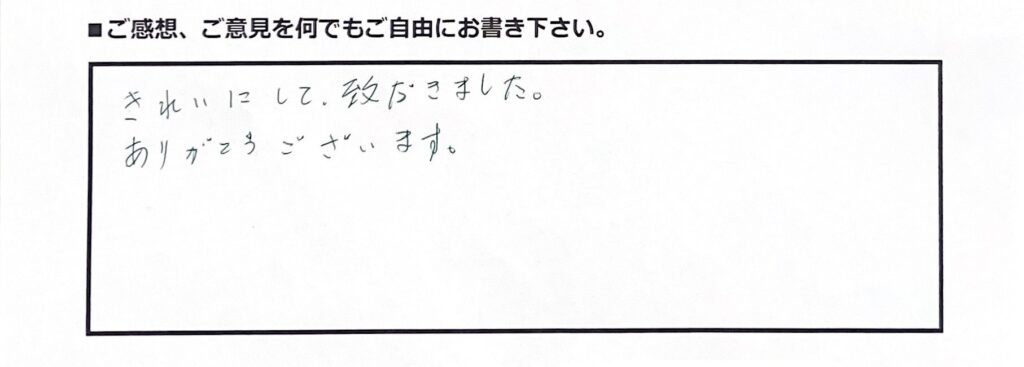 ■ご感想、ご意見を何でもご自由にお書き下さい。
きれいにして、致だきました。
ありがとうございます。